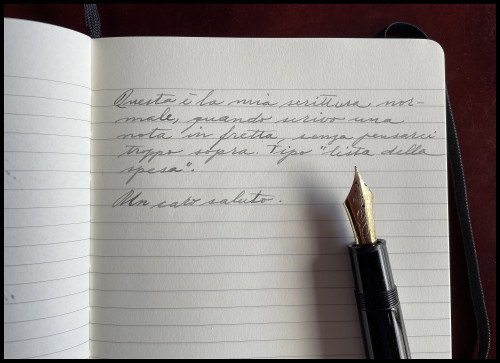 Questa è la mia scrittura nor-
male, quando scrivo una
nota in fretta, senza pensarci
troppo sopra. Tipo "lista della
spesa".
Un caro saluto.